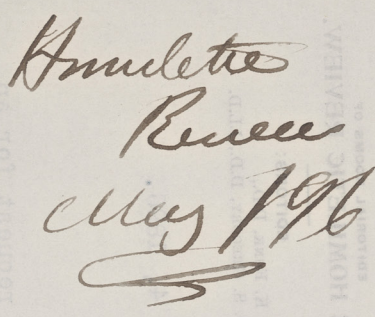 Homiletic
Review
May /96